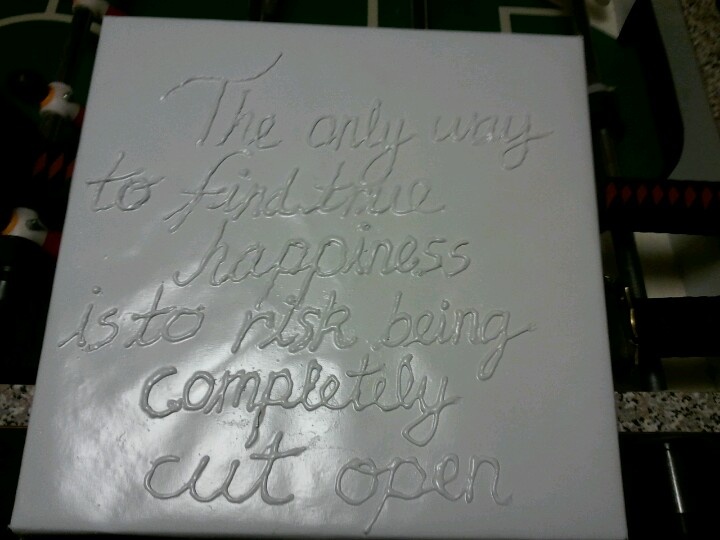 The only way
to find true
happiness
is to risk being
completely
cut open